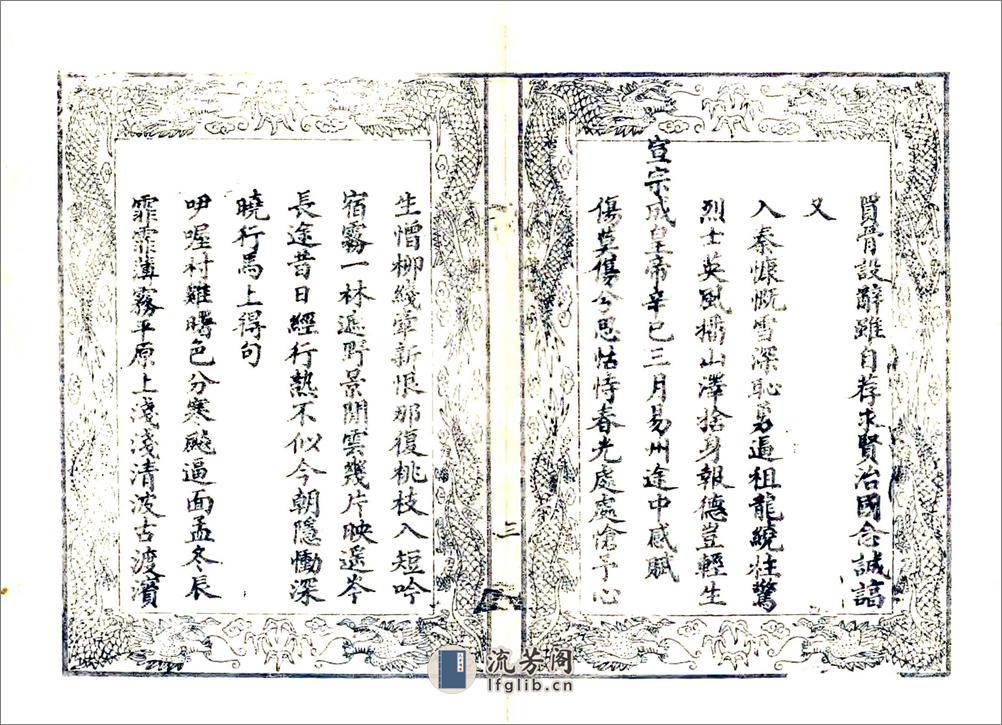 買骨設辭雖自荐求賢治國念誠諳
又
入秦慷慨雪深恥勇逼祖龍繞柱驚
烈士英風播山澤捨身報德豈輕生
宣宗成皇帝辛巳三月易州途中感賦
傷莫傷兮思怙恃春光處處愴予心
生憎柳綫牽新恨那復桃枝入短吟
宿霧一林遮野景閒雲幾片映遙岑
長途昔日經行熟不似今朝隱慟深
曉行馬上得句
咿喔村雞曙色分寒飈逼面孟冬辰
霏霏薄霧平原上淺淺清波古渡濱
三
流芳阁
lfglib.cn